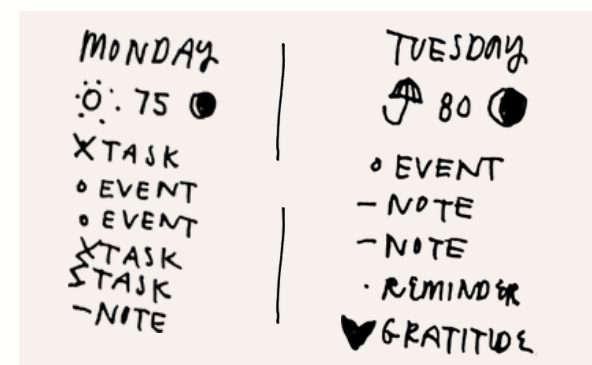 MONDAY
75
X TASK
o EVENT
o EVENT
X TASK
TASK
- NOTE
TUESDAY
80
o EVENT
- NOTE
- NOTE
· REMINDER
♥ GRATITUDE